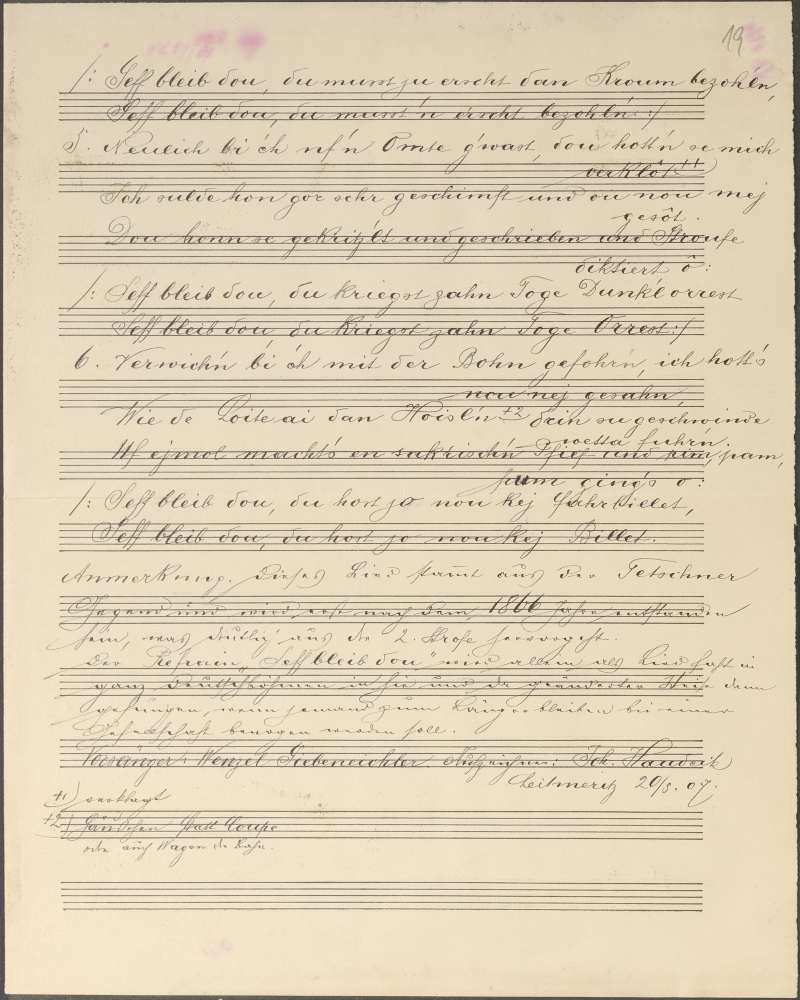 19
/: Seff bleib dou, du musst ju erscht dan Kroum bezohln,
Seff bleib dou, du musst'n erscht bezohln :/
5. Neulich bi ch uf'n Omte g'wast, dou hott'n se mich
verklôt +1)
Ich sulde hon gor sehr geschimft und ou nou mej
gesôt.
Dou honn se gekritz'lt und geschrieben und Stroufe
diktiert ô:
/: Seff bleib dou, du kriegst zahn Toge Dunk'lorrest
Seff bleib dou, du kriegst zahn Toge Orrest :/
6. Verwich'n bi ch mit der Bohn gefohr'n, ich hott's
nou nej gesahn,
Wie de Loite ai dan Hoisl'n +2 drin su geschwinde
wetta fuhr'n.
Uf ejmol macht's en sakrisch'n Pfief und pim, pam,
pum ging's o:
/: Seff bleib dou, du host jo nou kej Fahrbillet,
Seff bleib dou, du host jo nou kej Billet.
Anmerkung. Dieses Lied stammt aus der Tetschner
Gegend und wird erst nach dem 1866 Jahre entstanden
sein, was deutlich aus der 2. Strofe hervorgeht.
Der Refrain "Seff bleib dou" wird allein als Lied fast in
ganz Deutschböhmen in hie und da geänderter Weise dann
gesungen, wenn jemand zum Längerbleiben bei einer
Gesellschaft bewogen werden soll.
Vorsänger: Wenzel Siebeneichler Aufzeichner: Joh.
Leitmeritz 20/5. 07.
+1) verklagt
+2) Häuschen statt Coupe
oder auch Wagen der Bahn.